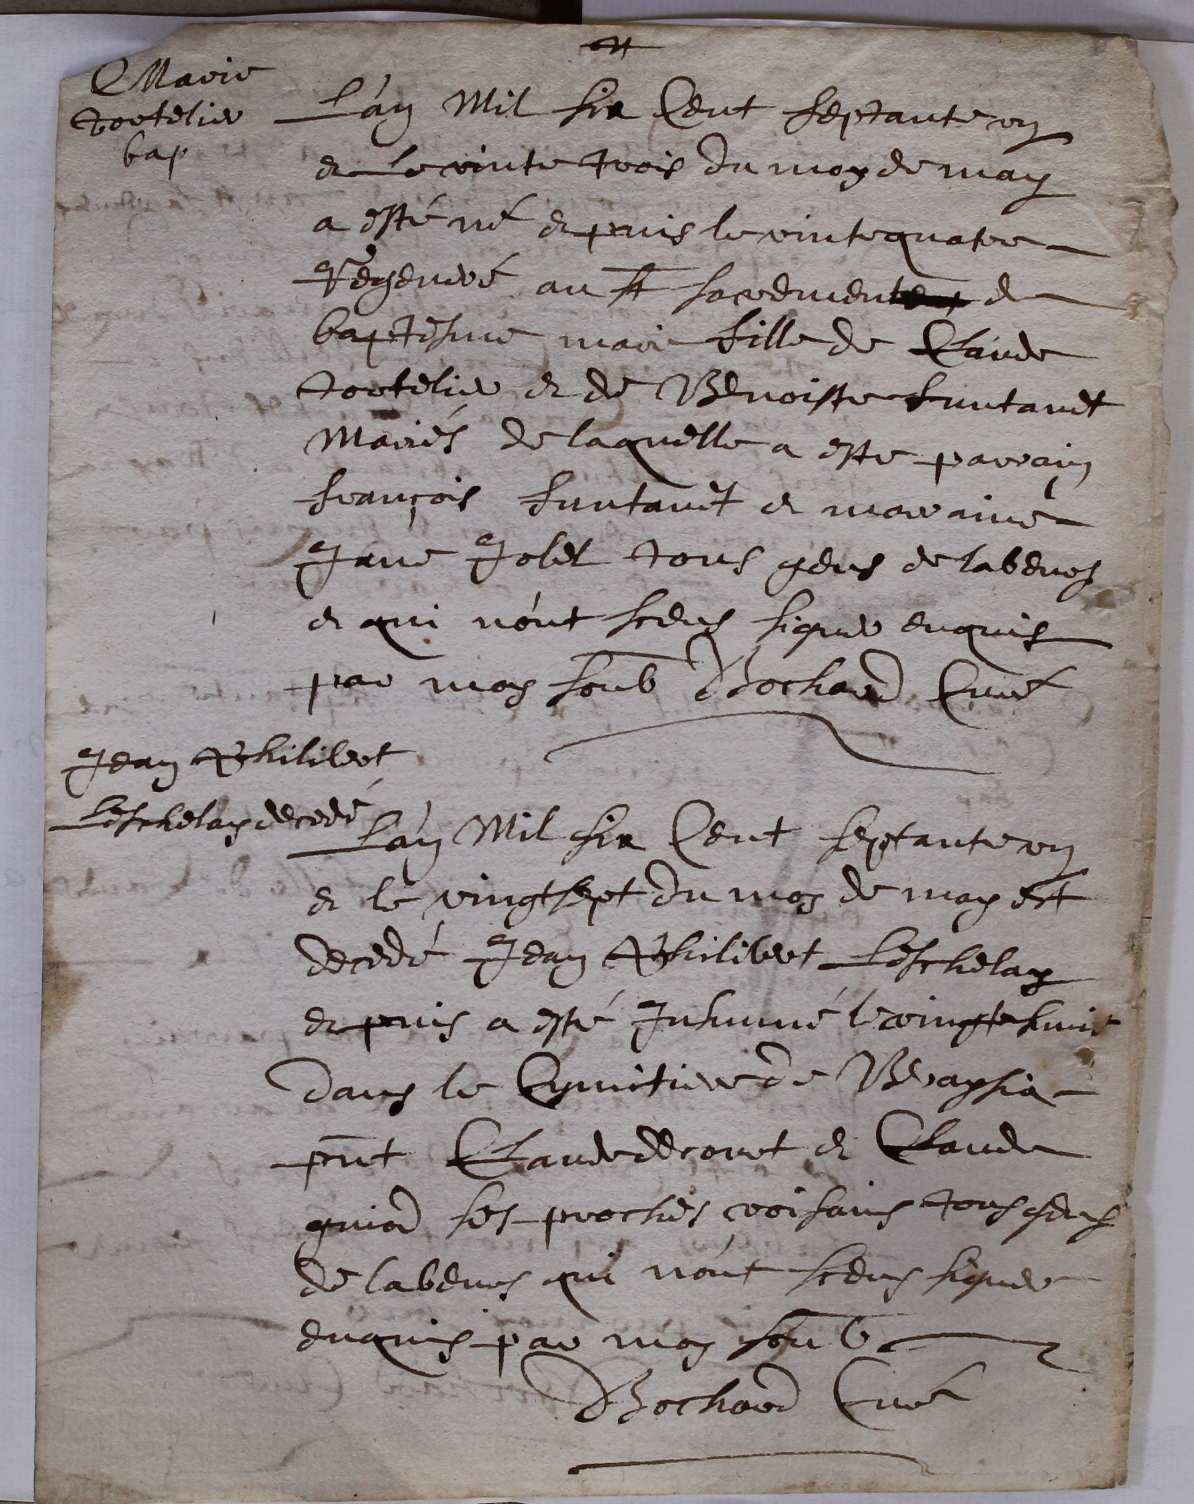 Marie
tortelier
bap
L'an Mil six Cent septante un
et le vinte trois du moy de may
a esté né et puis le vintequatre
Regeneré au st sacrement de
baptesme marie fille de Claude
tortelier et de Benoiste funtanet
Mariés de laquelle a este parrain
françois funtanet et marraine
Jane Jolet tous gens de labeurs
et qui n'ont sceus signer enquis
par moy soub Bochard Curé
Jean Philibert
Leschelay decedé
L'an Mil six Cent septante un
et le vingtsept du moy de may est
decedé Jean Philibert Leschelay
et puis a esté Inhumé le vingtehuit
dans le Cymitiere de
pnt Claude decourt et Claude
ses proches voisains tous gens
de labeurs qui n'ont sceus signer
enquis par moy soub
Bochard Curé